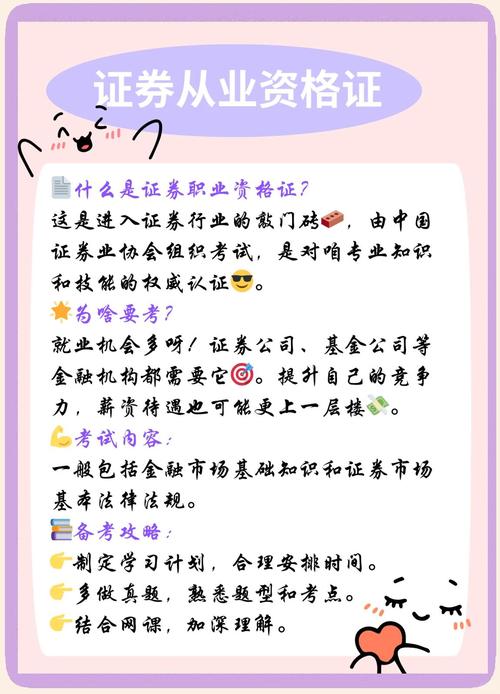 证券从业资格证
📄什么是证券职业资格证?
这是进入证券行业的敲门砖🧱,由中国
证券业协会组织考试,是对咱专业知识
和技能的权威认证😎。
🌟为啥要考?
就业机会多呀!证券公司、基金公司等
金融机构都需要它🎯。提升自己的竞争
力,薪资待遇也可能更上一层楼💸。
💪考试内容:
一般包括金融市场基础知识和证券市场
基本法律法规。
📚备考攻略:
👉制定学习计划,合理安排时间。
👉多做真题,熟悉题型和考点。
👉结合网课,加深理解。